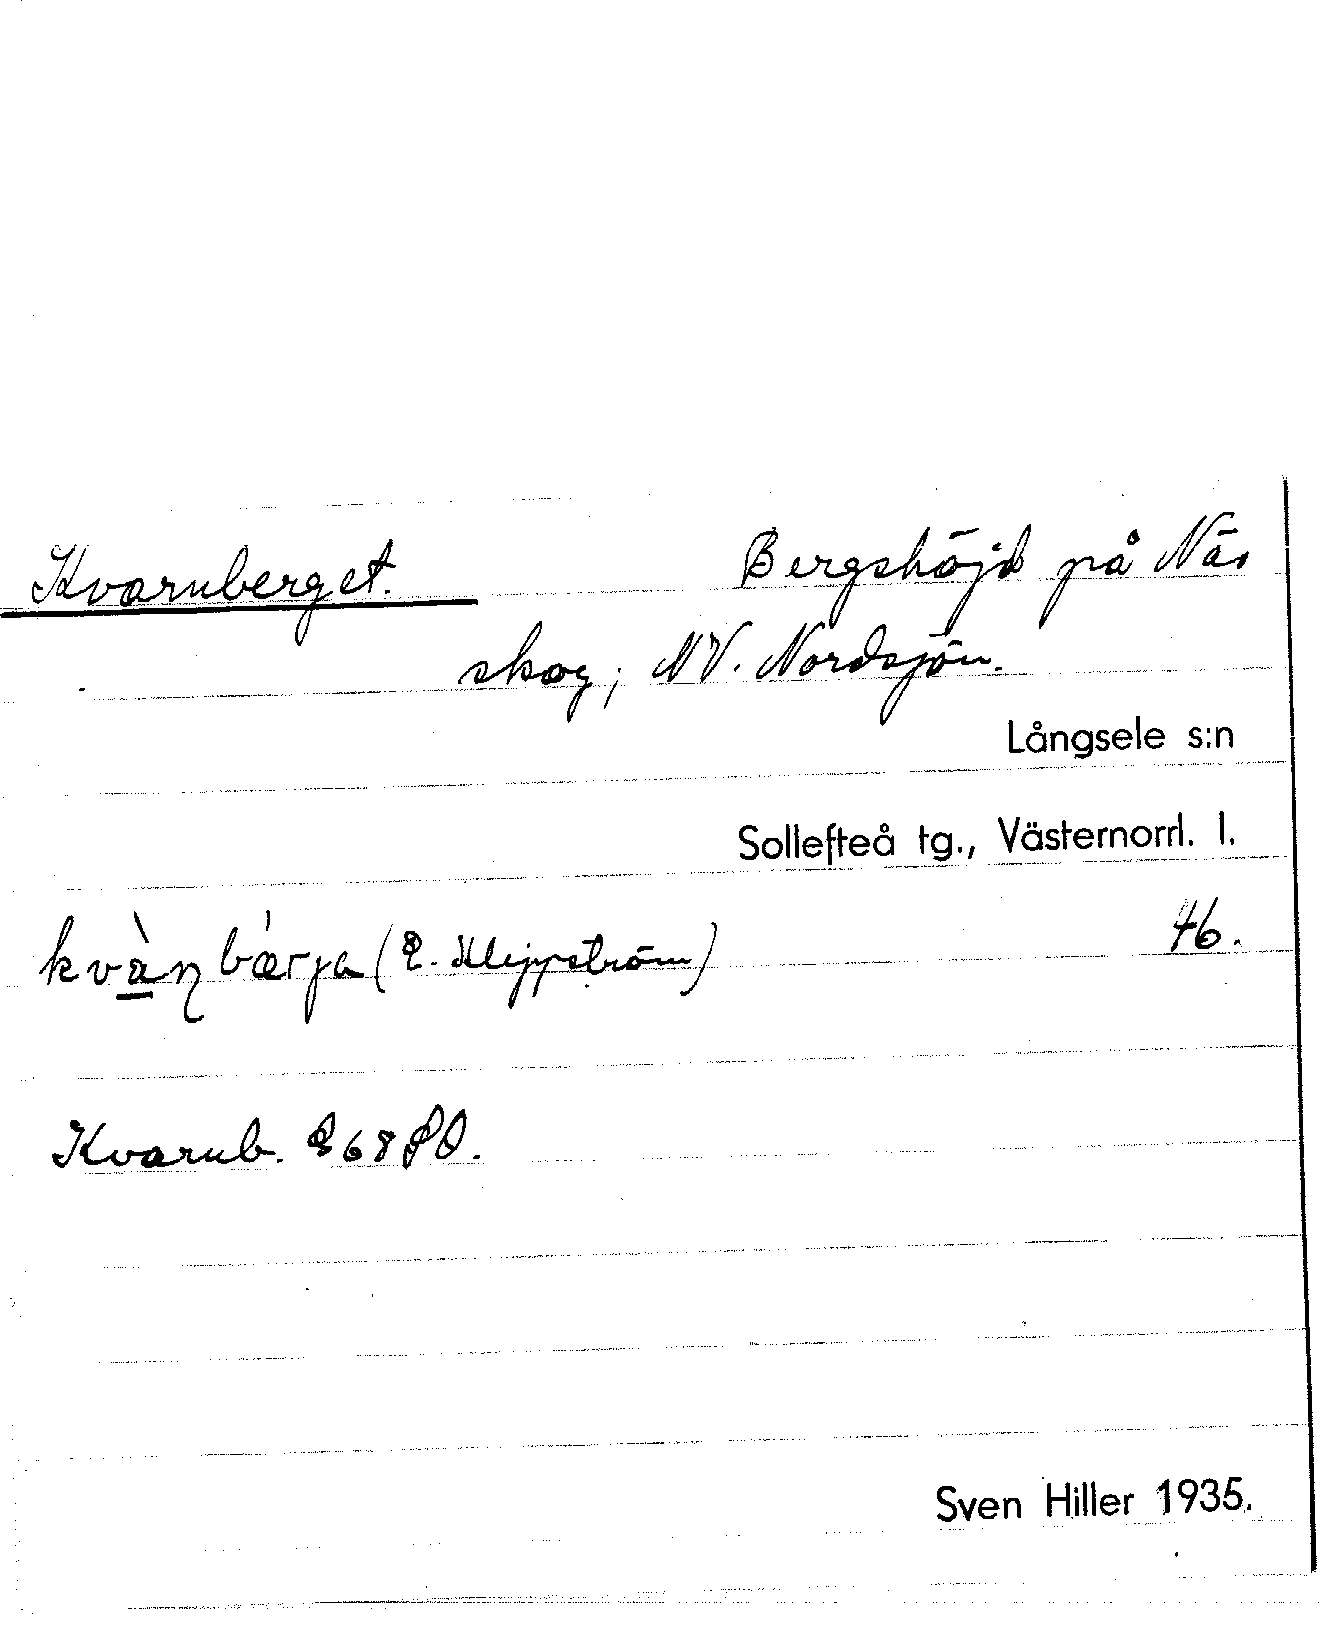 Kvarnberget. Bergshöjd på Näs
skog; NV. Nordsjön.
Långsele s:n
Sollefteå tg., Västernorrl. l.
kvàn̠bǽrja (E. Kleppström) 46.
Kvarnb. 868 SO.
Sven Hiller 1935.